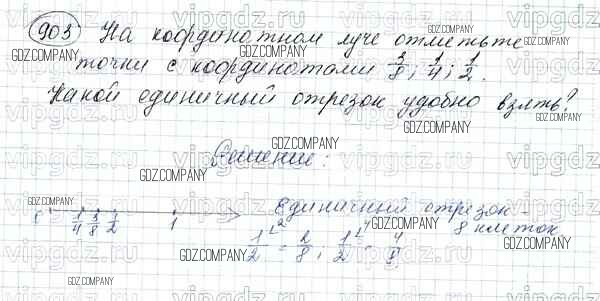 903 На координатном луче отметьте
точки с координатами 3/8; 1/4; 1/2.
Какой единичный отрезок удобно взять?
Решение:
Единичный отрезок -
8 клеток.
1/4 3/8 1/2 1
1/2 = 2/8; 1/2 = 4/8
vipgdz.com
GDZ.COMPANY